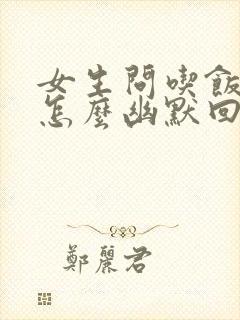 女生問喫飯
怎麼幽默回
鄭麗君